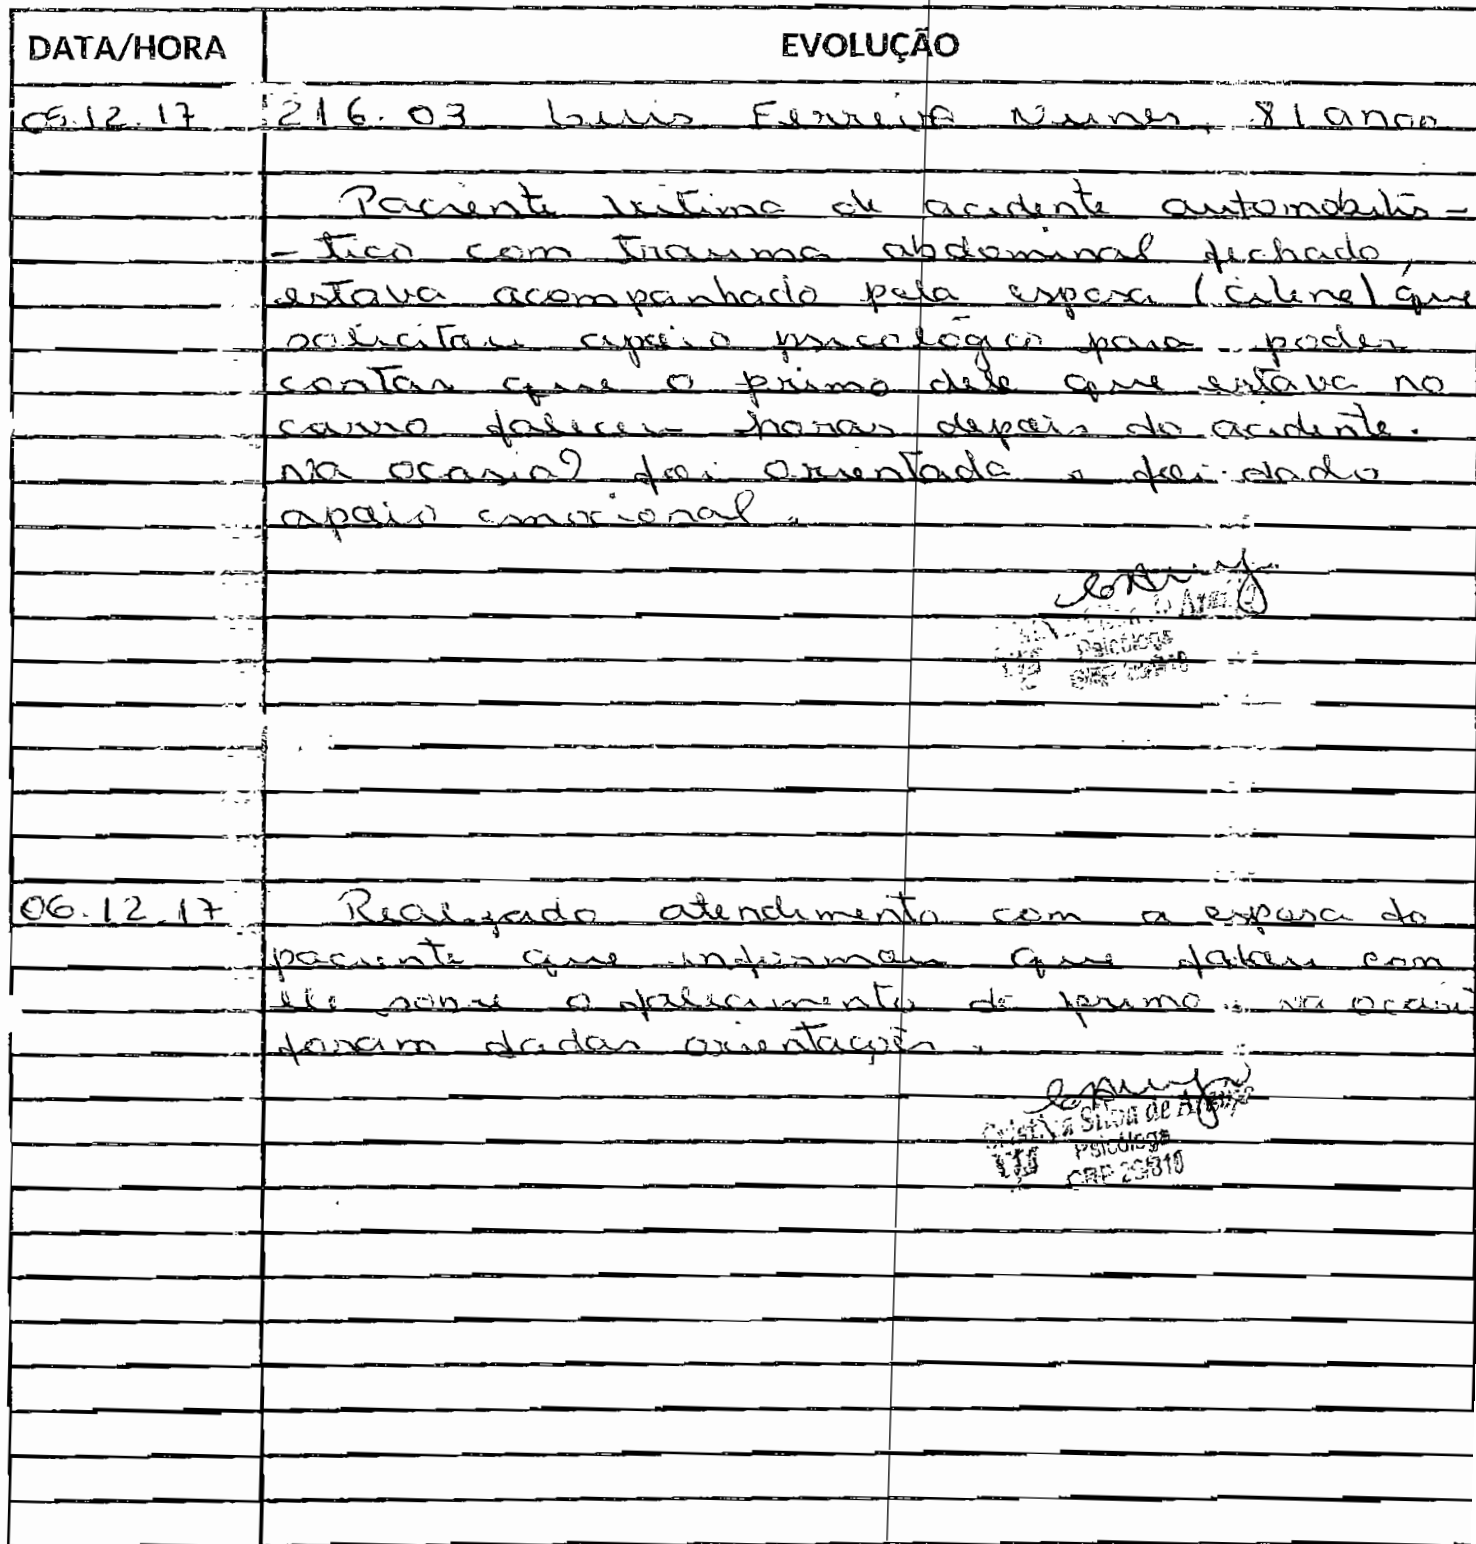 DATA/HORA EVOLUÇÃO
05.12.17 216.03 Luis Ferreira Nunes, 81 anos
Paciente vítima de acidente automobilís-
-tico com trauma abdominal fechado,
estava acompanhado pela esposa (Cilene) que
solicitou apoio psicológico para poder
contar que o primo dele que estava no
carro faleceu horas depois do acidente.
Na ocasião foi orientada e foi dado
apoio emocional.
Psicóloga
06.12.17 Realizado atendimento com a esposa do
paciente que informou que falou com
ele sobre o falecimento do primo. Na ocasiã
foram dadas orientações.
Silva de Araújo
Psicóloga
CRP